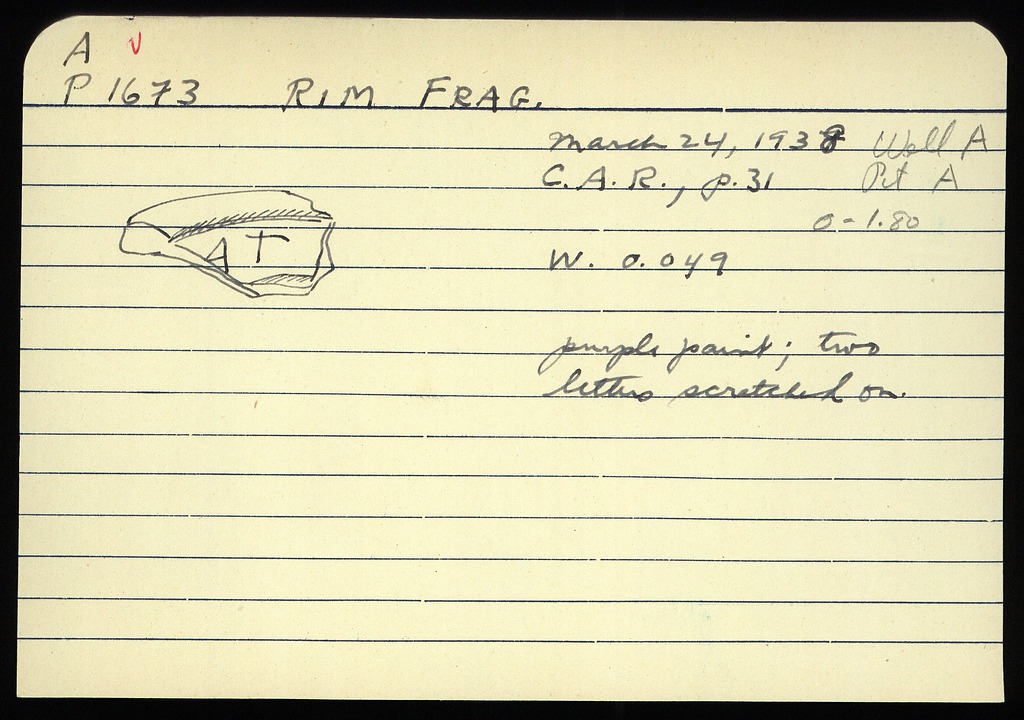 A ✓
P 1673 RIM FRAG.
March 24, 1938 Well A
C.A.R., p. 31 Pit A
0-1.80
A T
W. 0.049
purple paint; two
letters scratched on.